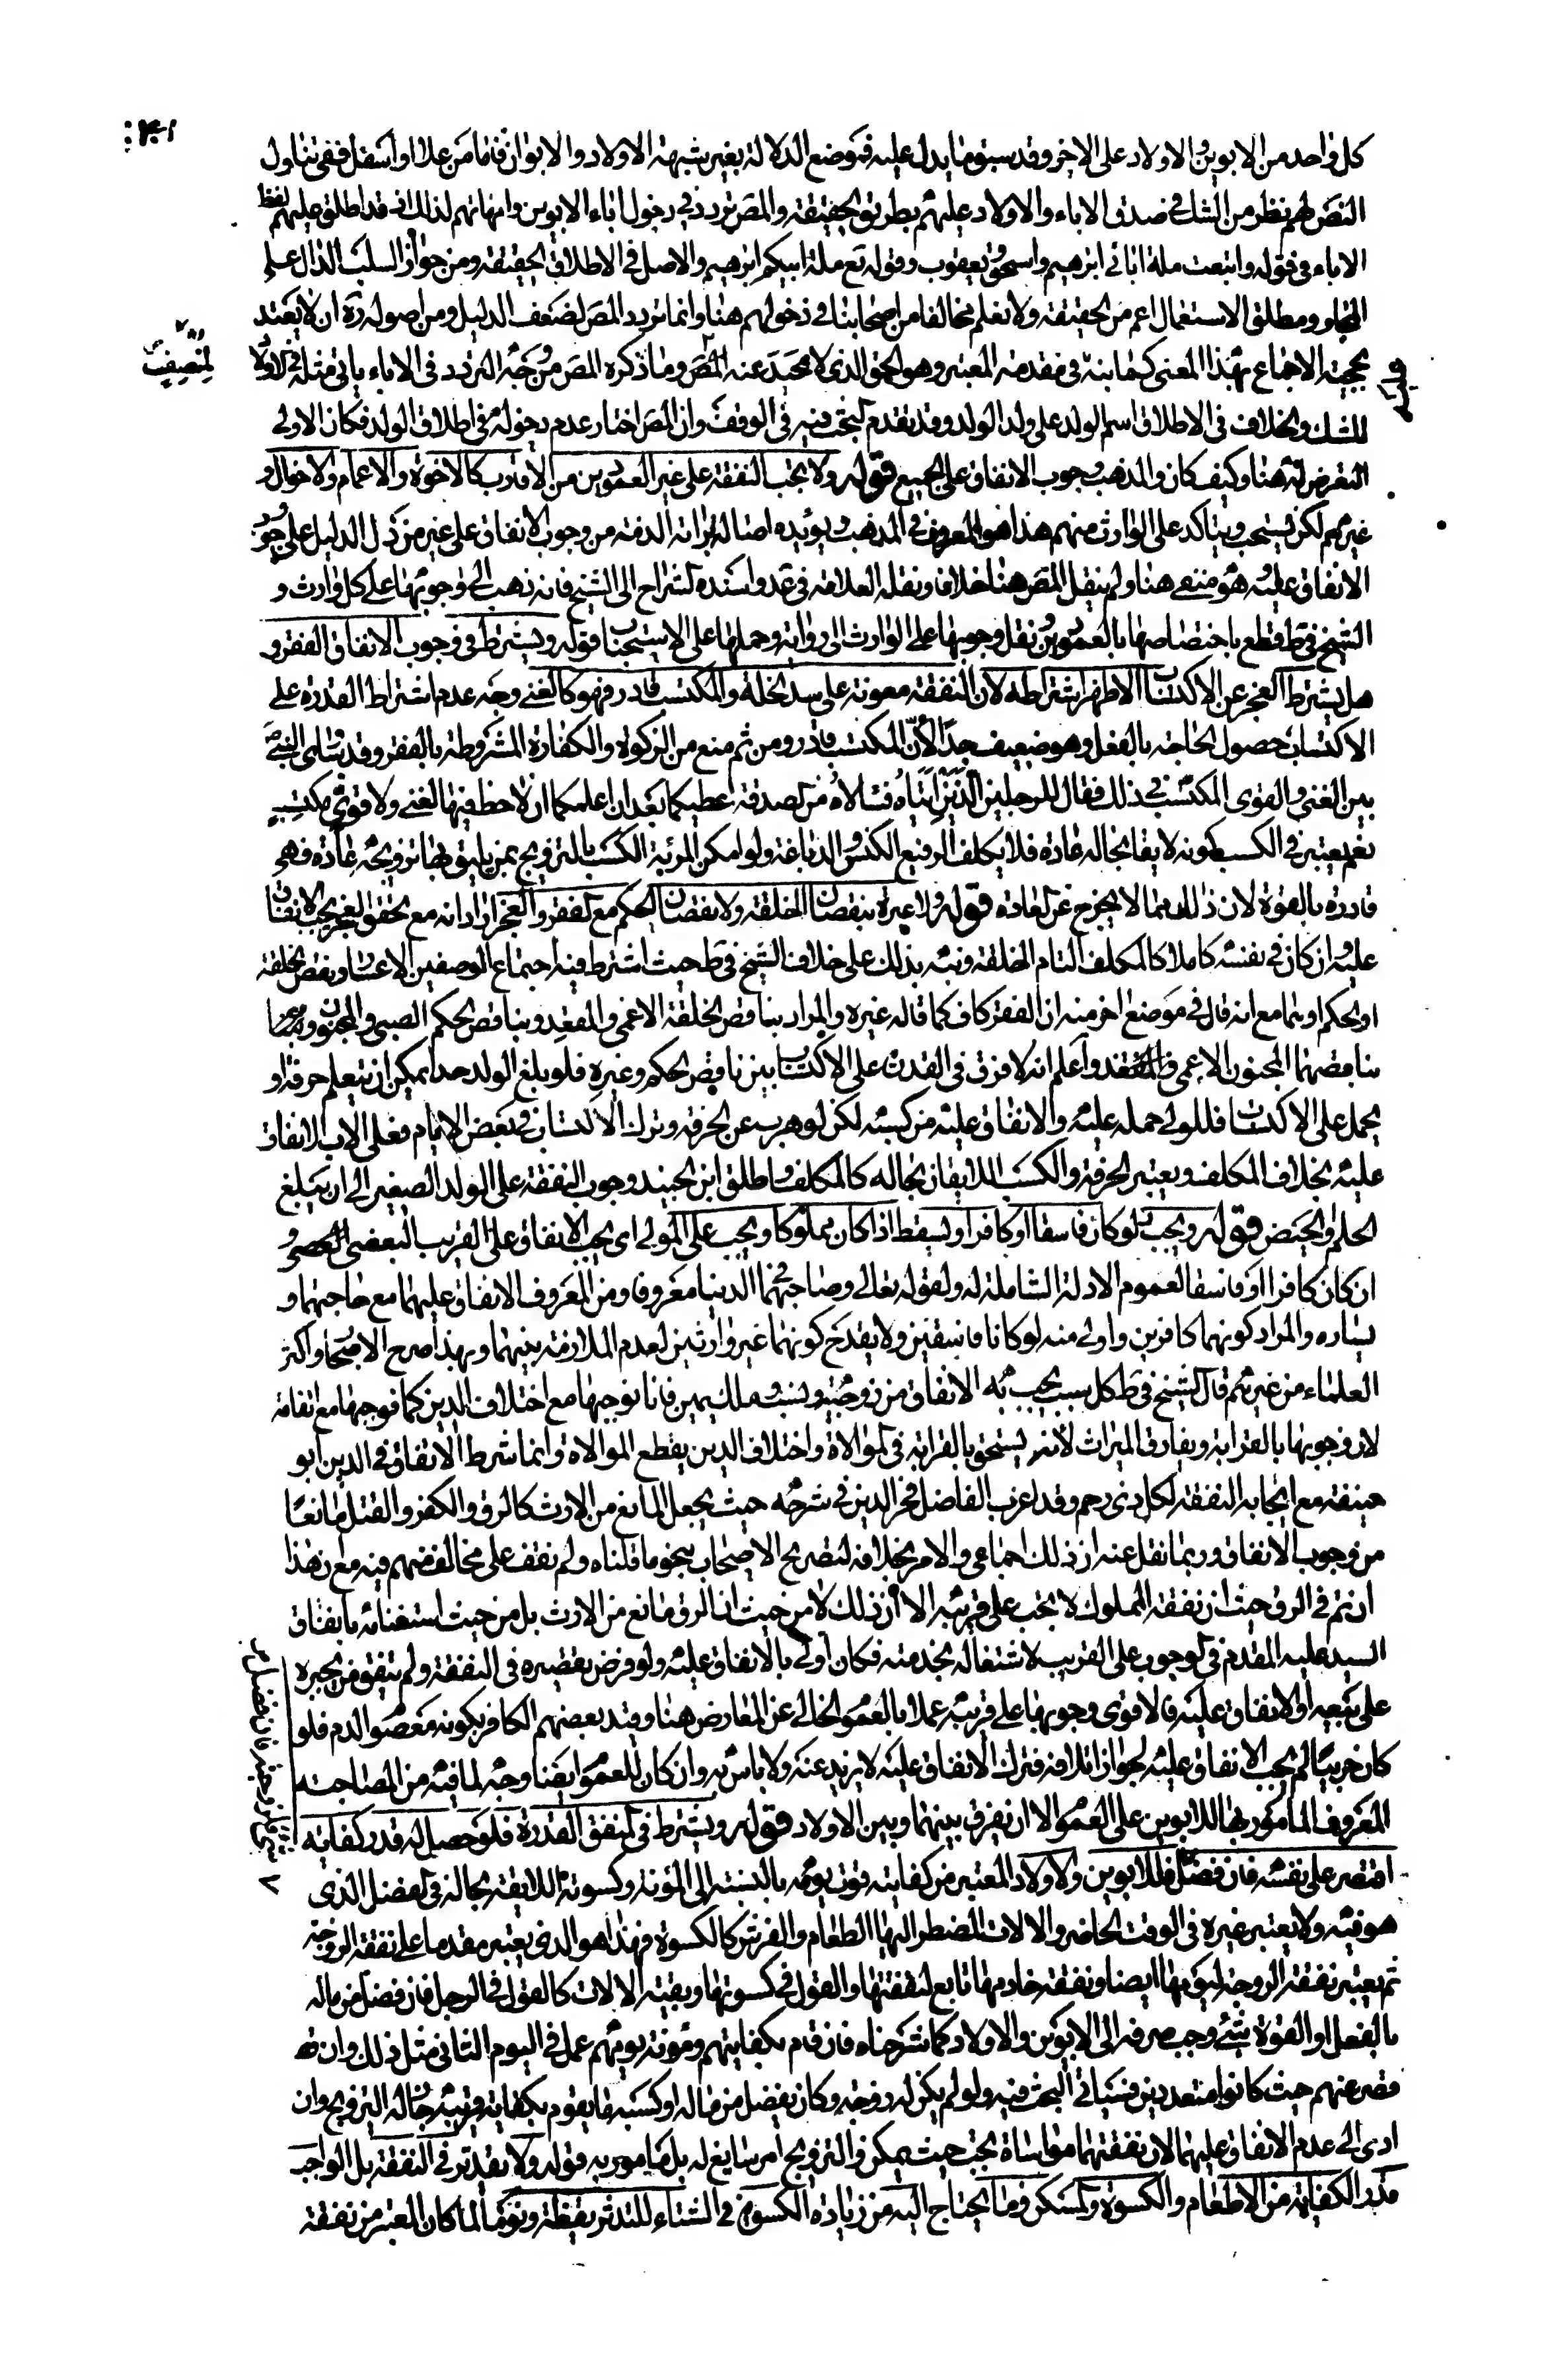 كل واحد من الابوين والاولاد على الاخر وقد سبق ما يدل عليه فموضع الدلالة بغير شبهة الاولاد والابوان فاما من علا او اسفل ففى تناول
النص لهم نظر من الشك فى صدق الاباء والاولاد عليهم بطريق الحقيقة والمص تردد فى دخول اباء الابوين وامهاتهم لذلك فقد اطلق عليهم لفظ
الاباء فى قوله واتبعت ملة ابائى ابرهيم واسحق ويعقوب وقوله تع ملة ابيكم ابرهيم والاصل فى الاطلاق الحقيقة ومن جواز السلب الدال على
المجاز ومطلق الاستعمال اعم من الحقيقة ولا نعلم مخالفا من اصحابنا فى دخولهم هنا وانما تردد المص لضعف الدليل ومن اصوله ره ان لا يعتد
بحجية الاجماع بهذا المعنى كما بينه فى مقدمة المعتبر وهو الحق الذى لا محيد عنه للمنصف وما ذكره المص من وجه التردد فى الاباء ياتى مثله فى الاولاد
للشك والخلاف فى الاطلاق اسم الولد على ولد الولد وقد تقدم البحث فيه فى الوقف وان المص اختار عدم دخوله فى اطلاق الولد فكان الاولى
التعرض له هنا وكيف كان والمذهب وجوب الانفاق على الجميع قوله ولا تجب النفقة على غير العمودين من الاقارب كالاخوة والاعمام والاخوال و
غيرهم لكن يستحب ويتاكد على الوارث منهم هذا هو المعروف فى المذهب ويؤيده اصالة براءة الذمة من وجوب الانفاق على غير من دل الدليل على وجوب
الانفاق عليه وهو منتف هنا ولم ينقل المص هنا خلافا ونقله العلامة فى عد واسنده الشراح الى الشيخ فانه ذهب الى وجوبها على كل وارث و
الشيخ فى ط قطع باختصاصها بالعمودين ونقل وجوبها على الوارث الى رواية وحملها على الاستحباب قوله ويشترط فى وجوب الانفاق الفقر و
هل يشترط العجز عن الاكتساب الاظهر اشتراطه لان النفقة معونة على سد الخلة والمكتسب قادر فهو كالغنى وجه عدم اشتراط القدرة على
الاكتساب حصول الحاجة بالفعل وهو ضعيف جدا لان المكتسب قادر ومن ثم منع من الزكوة والكفارة المشروطة بالفقر وقد ساوى النبى ص
بين الغنى والقوى المكتسب فى ذلك فقال للرجلين الذين اتياه فسالاه من الصدقة اعطيكما بعد ان اعلمكما ان لا حظ فيها لغنى ولا قوى مكتسب
نعم يعتبر فى الكسب كونه لايقا بحاله عادة فلا يكلف الرفيع الكنس والدباغة ولو امكن المرئة الكسب بالتزويج بمن يليق بها تزويجه عادة فهى
قادرة بالقوة لان ذلك مما لا يخرج عن العادة قوله ولا عبرة بنقصان الخلقة ولا نقصان الحكم مع الفقر والعجز اراد انه مع تحقق العجز يجب الانفاق
عليه وان كان فى نفسه كاملا كالمكلف التام الخلقة ونبه بذلك على خلاف الشيخ فى ط حيث اشترط فيه اجتماع الوصفين الاعسار ونقص الخلقة
او الحكم او هما مع انه قال فى موضع اخر منه ان الفقر كاف كما قاله غيره والمراد بناقص الخلقة الاعمى والمقعد وبناقص الحكم الصبى والمجنون
بناقصهما المجنون الاعمى والمقعد واعلم انه لا فرق فى القدرة على الاكتساب بين ناقص الحكم وغيره فلو بلغ الولد حدا يمكن ان يتعلم حرفة او
يحمل على الاكتساب فللولى حمله عليه والانفاق عليه من كسبه لكن لو هرب عن الحرفة وترك الاكتساب فى بعض الايام فعلى الاب الانفاق
عليه بخلاف المكلف ويعتبر الحرفة والكسب اللايقان بحاله كالمكلف واطلق ابن الجنيد وجوب النفقة على الولد الصغير الى ان يبلغ
الحلم والحيض قوله ويجب لو كان فاسقا او كافرا ويسقط اذا كان مملوكا ويجب على المولى اى يجب الانفاق على القريب
ان كان كافرا او فاسقا لعموم الادلة الشاملة له ولقوله تعالى وصاحبهما فى الدنيا معروفا ومن المعروف الانفاق عليهما مع حاجتهما و
يساره والمراد كونهما كافرين واولى منه لو كانا فاسقين ولا يقدح كونهما غير وارثين لعدم الملازمة بينهما وبهذا صرح الاصحاب واكثر
العلماء من غيرهم قال الشيخ فى ط كل سبب يجب به الانفاق من زوجية ونسب وملك يمين فانا نوجبها مع اختلاف الدين كما نوجبها مع اتفاقه
لان وجوبها بالقرابة ويفارق الميراث لانه يستحق بالقرابة فى الموالاة واختلاف الدين يقطع الموالاة وانما شرط الاتفاق فى الدين ابو
حنيفة مع ايجابه النفقة لكل ذى رحم وقد اغرب الفاضل فخر الدين فى شرحه حيث جعل المانع من الارث كالرق والكفر والقتل مانعا
من وجوب الانفاق وربما نقل عنه ان ذلك اجماعى والامر بخلافه لتصريح الاصحاب بنحو ما قلناه ولم نقف على مخالف منهم فيه مع ان هذا
ان تم فى الرق حيث ان نفقة المملوك لا تجب على قريبه الا ان ذلك لا من حيث ان الرق مانع من الارث بل من حيث استغنائه بانفاق
السيد عليه المقدم فى الوجوب على القريب لاشتغاله بخدمته فكان اولى بالانفاق عليه ولو فرض تقصيره فى النفقة ولم يتفق من يجبره
على بيعه او الانفاق عليه فالاقوى وجوبها على قريبه عملا بالعموم الخالى عن المعارض هنا وقيد بعضهم الكافر بكونه معصوم الدم فلو
كان حربيا لم يجب الانفاق عليه لجواز اتلافه فترك الانفاق عليه لا يزيد عنه ولا باس به وان كان للعموم ايضا وجه لما فيه من المصاحبة
المعروف المامور بها للابوين على العموم الا ان يفرق بينهما وبين الاولاد قوله ويشترط فى المنفق القدرة فلو حصل له قدر كفايته
اقتصر على نفسه فان فضل فللابوين والاولاد المعتبر من كفايته قوت يومه بالنسبة الى المؤنة وكسوته اللايقة بحاله فى الفصل الذى
هو فيه ولا يعتبر غيره فى الوقت الحاضر والالات المضطر اليها الطعام والفرش كالكسوة فهذا هو الذى يعتبر مقدما على نفقة الزوجة
ثم يعتبر نفقة الزوجة ليومها ايضا ونفقة خادمها تابع لنفقتها والقول فى كسوتها وبقية الالات كالقول فى الرجل فان فضل من ماله
بالفعل او القوة شئ وجب صرفه الى الابوين والاولاد كما شرحناه فان قام بكفايتهم ومؤنة يومهم عمل فى اليوم الثانى مثل ذلك وان
قصر عنهم حيث كانوا متعددين فسياتى البحث فيه ولو لم يكن له زوجة وكان يفضل من ماله او كسبه ما يقوم بكفاية قريبه جاز له التزويج وان
ادى الى عدم الانفاق عليهما لان نفقتهما مواساة تجب حيث يمكن والتزويج امر سايغ له بل مامور به قوله ولا تقدير فى النفقة بل الواجب
قدر الكفاية من الاطعام والكسوة والمسكن وما يحتاج اليه من زيادة الكسوة فى الشتاء للتدثر يقظة ونوما لما كان المعتبر من نفقة